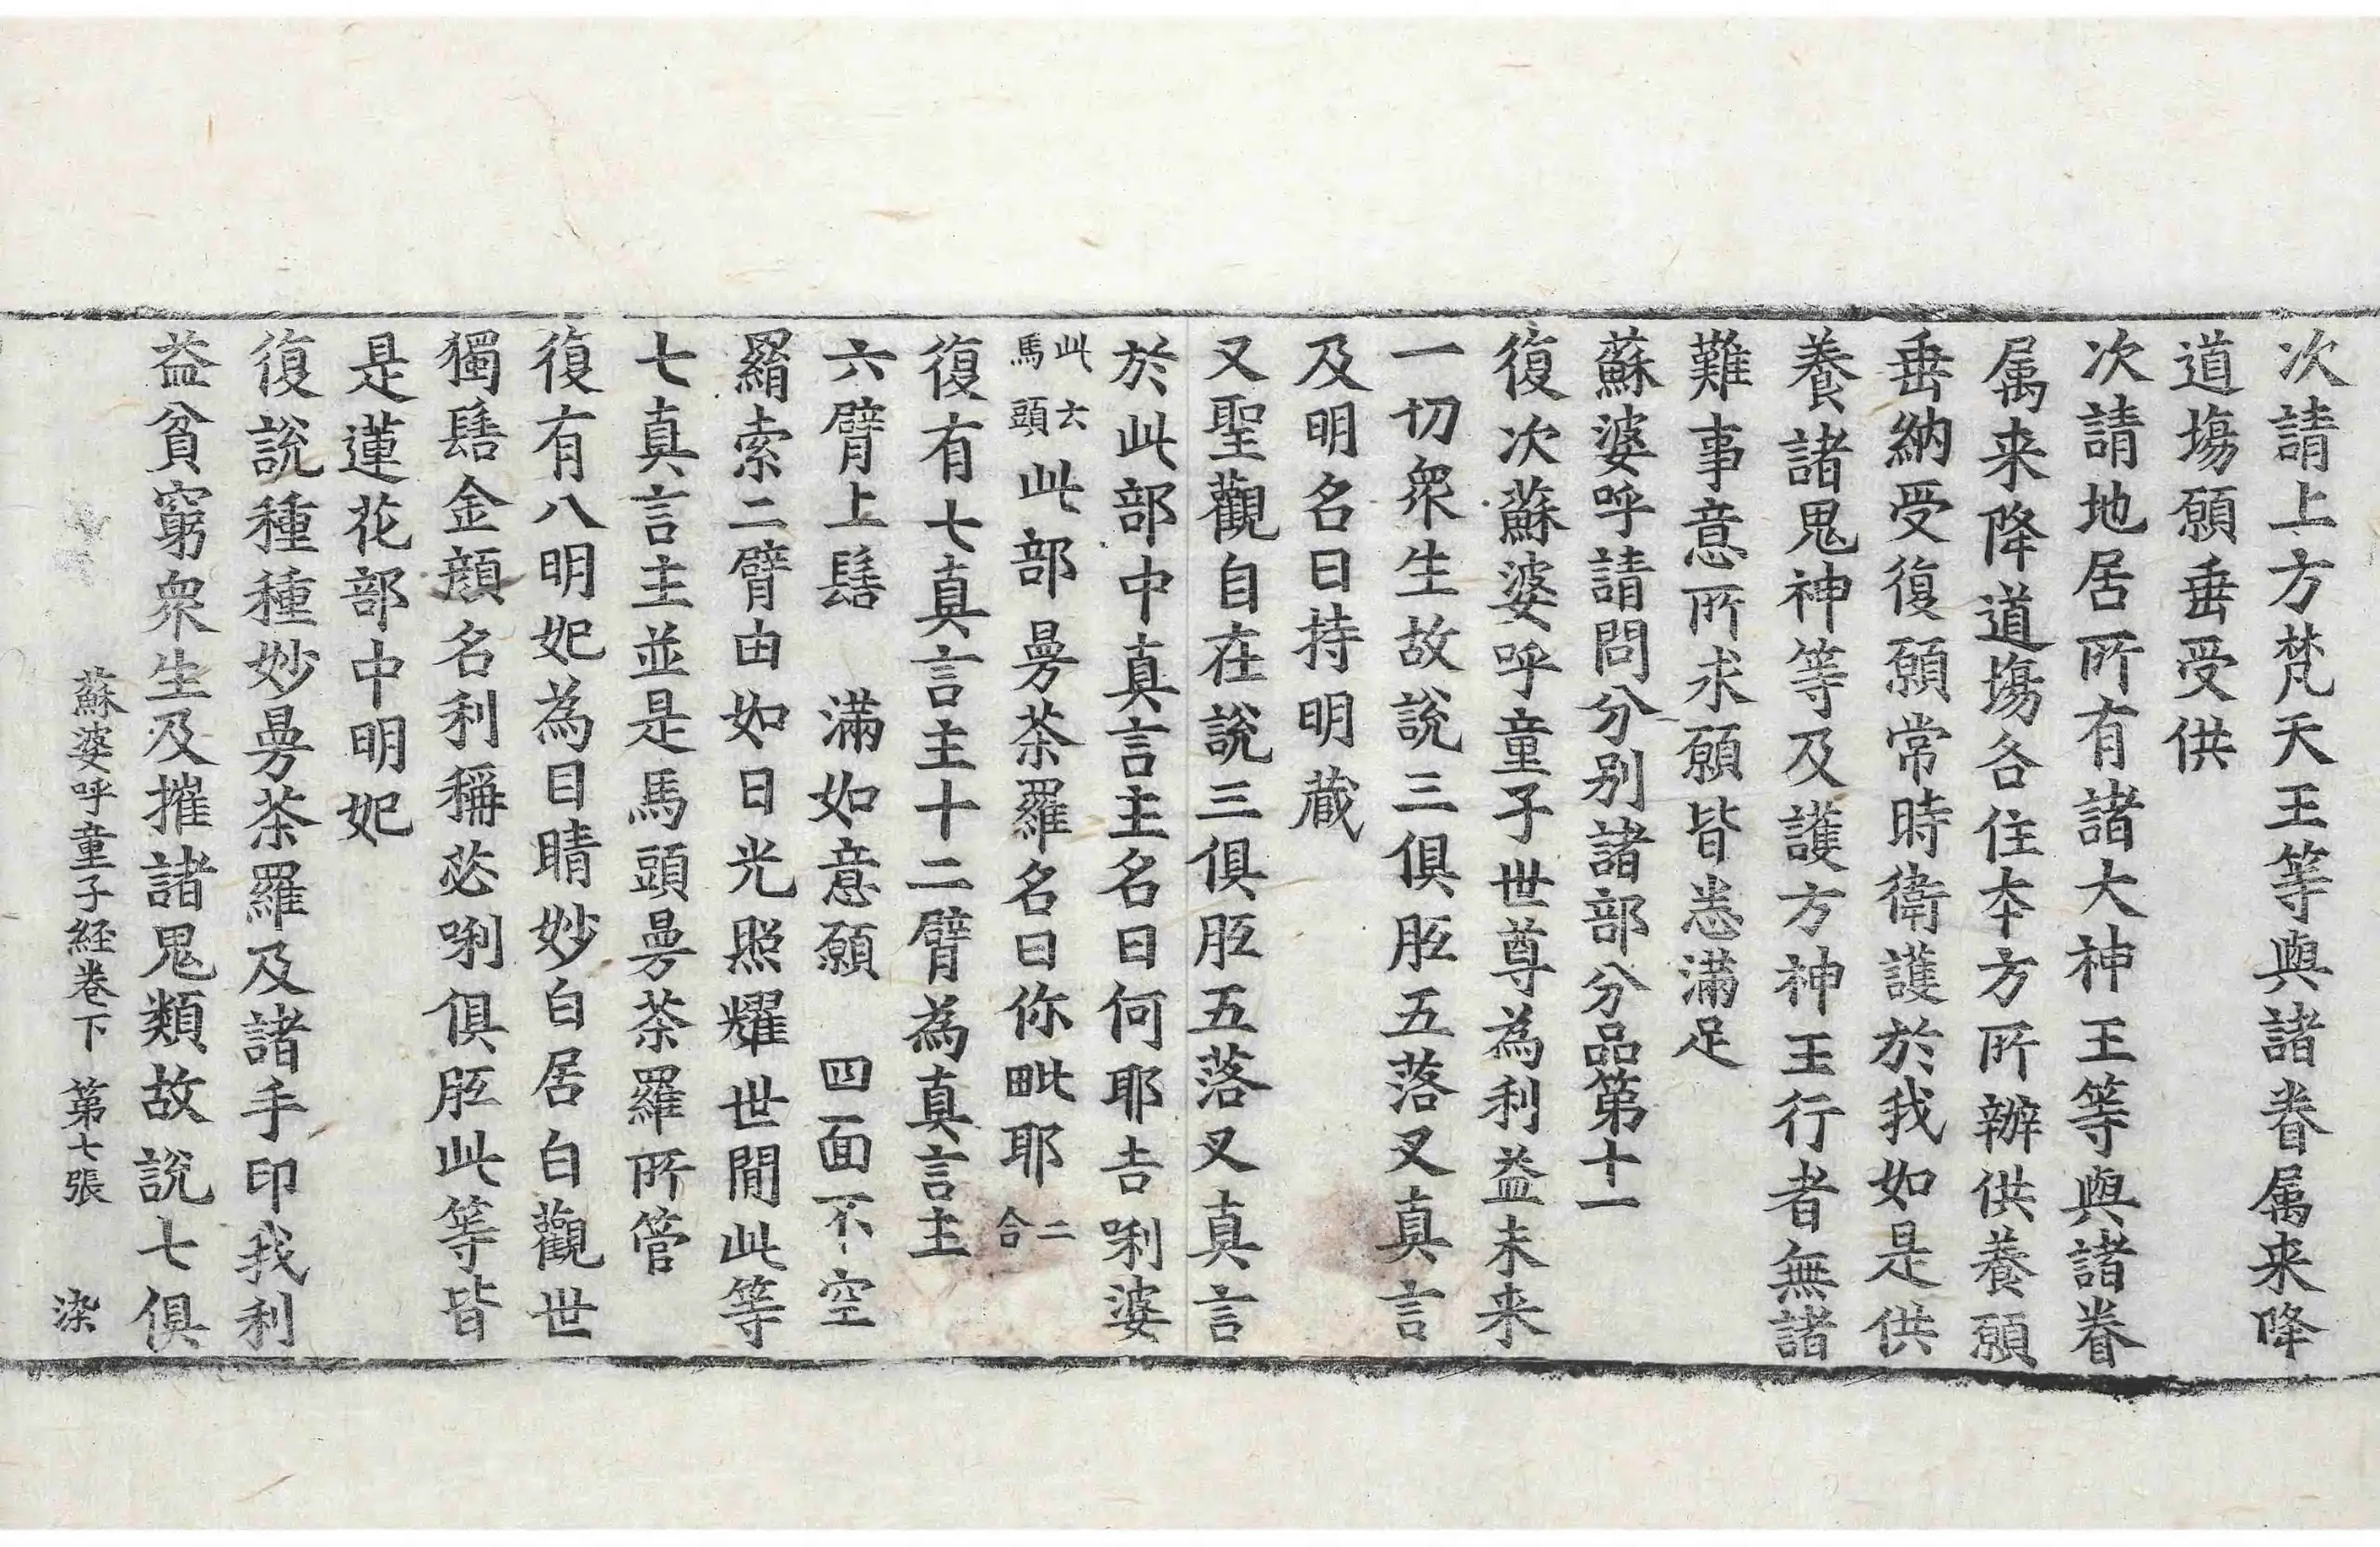 次請上方梵天王等與諸眷属来降
道場願垂受供
次請地居所有諸大神王等與諸眷
属来降道場各住夲方所辦供養願
垂納受復願常時衛護於我如是供
養諸鬼神等及護方神王行者無諸
難事意所求願皆悉滿足
蘇婆呼請問分别諸部分品第十一
復次蘇婆呼童子世尊為利益未来
一切衆生故說三俱胝五落叉真言
及明名曰持明蔵
又聖觀自在說三俱胝五落叉真言
於此部中真言主名曰何耶𠮷唎婆
此六馬頭此部曼荼羅名曰你毗耶二合
復有七真言主十二臂為真言主
六臂上髻 滿如意願 四面不空
羂索二臂由如日光照耀世間此等
七真言主並是馬頭曼荼羅所管
復有八明妃為目睛妙白居白觀世
獨髻金顔名利稱苾唎俱胝此等皆
是蓮花部中明妃
復說種種妙曼荼羅及諸手印我利
益貧窮衆生及摧諸鬼類故說七俱
蘇婆呼童子経卷下 第七張 染